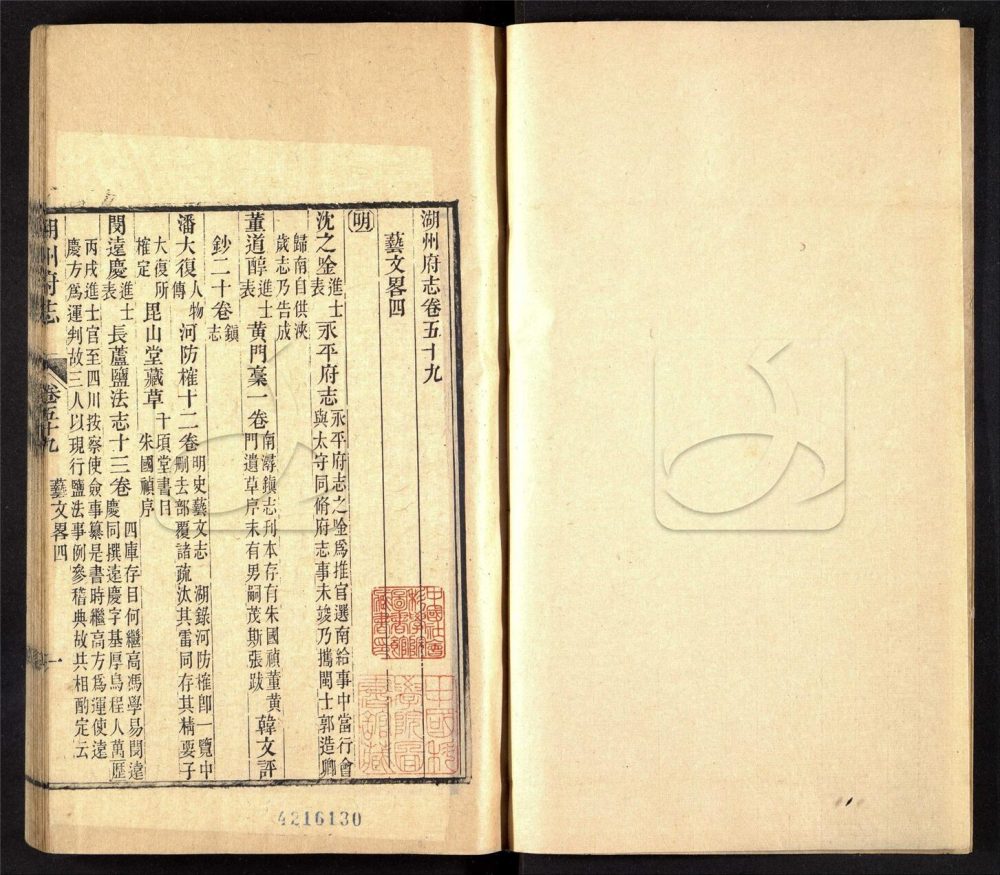 湖州府志卷五十九
藝文畧四
明
沈之唫進士表 永平府志永平府志之唫爲推官選南給事中當行會
與太守同脩府志事未竣乃攜閩士郭造卿
歸南自供浹
歲志乃告成
董道醇進士表 黄門稾一卷南潯鎮志刊本存有朱國禎董黄
門遺草序末有男嗣茂斯張跋 韓文評
鈔二十卷鎮志
潘大復人物傳 河防榷十二卷明史藝文志 湖錄河防榷卽一覽中
刪去部覆諸疏汰其雷同存其精要子
大復所
榷定 毘山堂藏草千頃堂書目
朱國禎序
閔遠慶進士表 長蘆鹽法志十三卷四庫存目何繼高馮學易閔遠
慶同撰遠慶字基厚烏程人萬厯
丙戌進士官至四川按察使僉事纂是書時繼高方爲運使遠
慶方爲運判故三人以現行鹽法事例參稽典故共相酌定云
湖州府志 卷五十九 藝文畧四 一
4216130